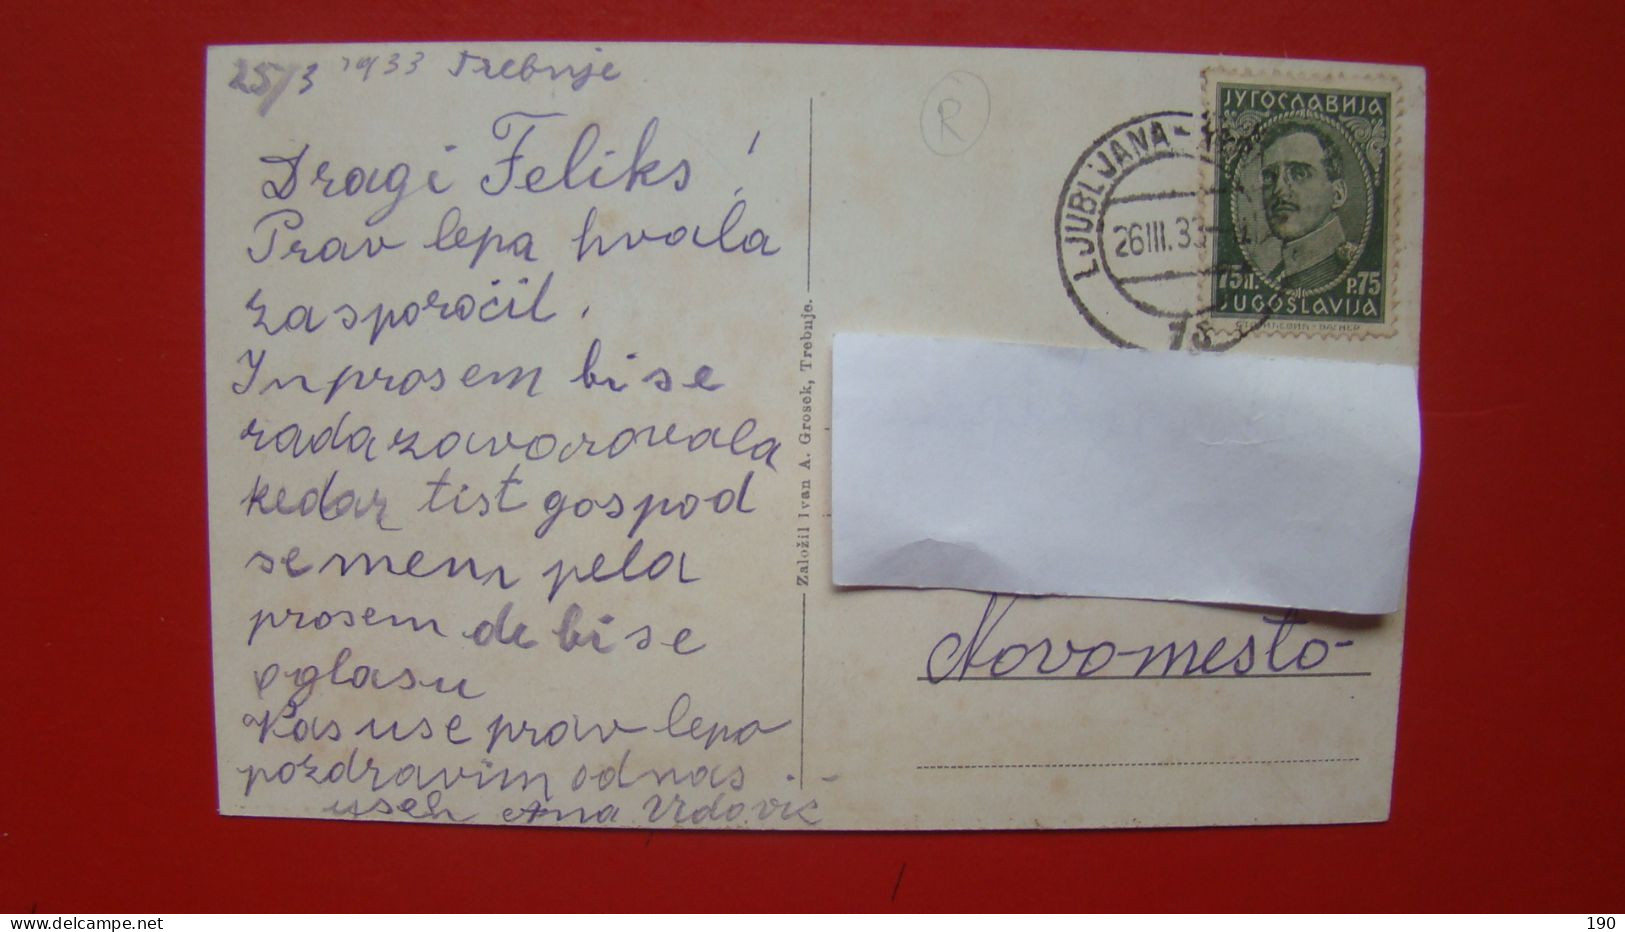 25/3 1933 Trebnje
Dragi Feliks!
Prav lepa hvala
za sporočil.
In prosem bi se
rada zavorovala
kedar tist gospod
se meni pela
prosem de bi se
oglasu
Vas use prav lepo
pozdravim od nas
useh Ana Vrdovic
Založil Ivan A. Grosek, Trebnje.
R
LJUBLJANA
26 III. 33
ЈУГОСЛАВИЈА
75П. P.75
JUGOSLAVIJA
Novomesto
190
delcampe.net